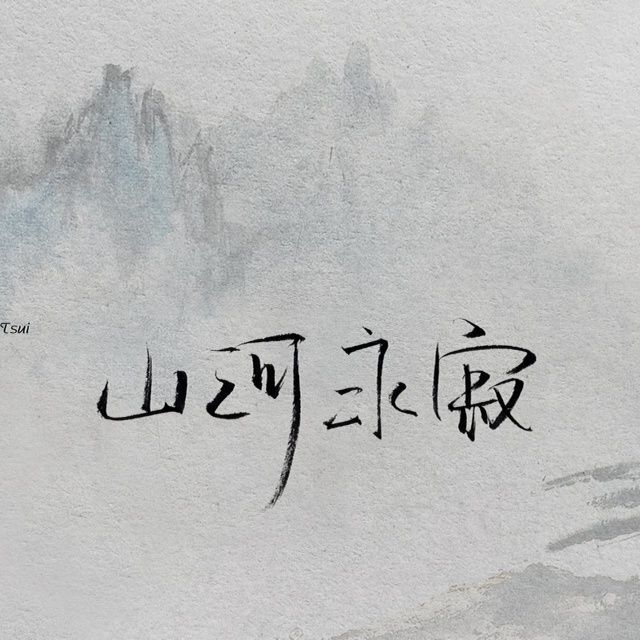 Tsui
山河永寂